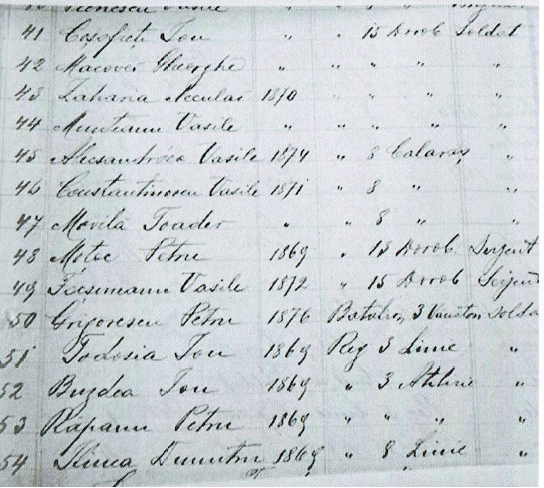 41 Cosofreți Ion " " 15 Dorob Soldat
42 Macovei Gheorghe " " " " "
43 Zaharia Neculai 1870 " " " "
44 Munteanu Vasile " " " " "
45 Alecsandréscu Vasile 1874 " 8 Calaraș "
46 Constantinescu Vasile 1871 " 8 " "
47 Movilă Toader " 8 " "
48 Motoc Petru 1869 " 15 Dorob. Sergent
49 Vasile 1872 " 15 Dorob Sergent
50 Grigorescu Petru 1876 Batalion 3 Soldat
51 Todosia Ion 1869 Reg 3 Linie "
52 Buzdea Ion 1869 " 3 Atilrie "
53 Rapanu Petru 1869 " " " "
54 Ilinca Dumitru 1869 " 8 Linie "